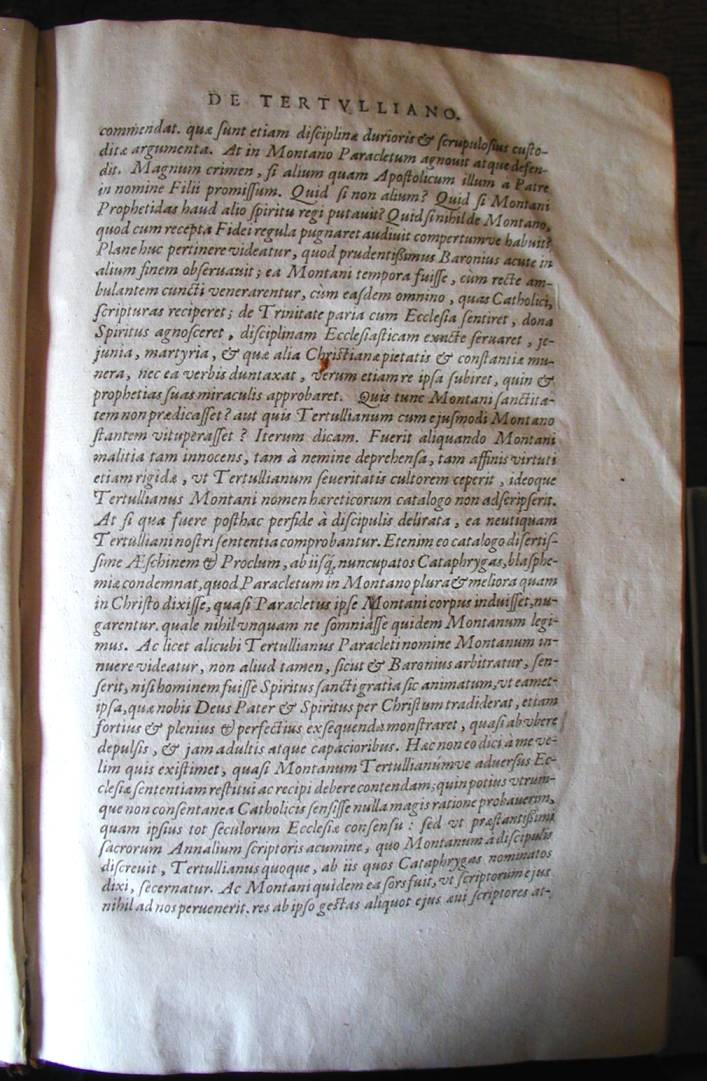 DE TERTVLLIANO.
commendat. quæ sunt etiam disciplinæ durioris & scrupulosius custo-
ditæ argumenta. At in Montano Paracletum agnouit atque defen-
dit. Magnum crimen, si alium quam Apostolicum illum a Patre
in nomine Filii promissum. Quid si non alium? Quid si Montani
Prophetidas haud alio spiritu regi putauit? Quid si nihil de Montano,
quod cum recepta Fidei regula pugnaret audiuit compertumve habuit?
Plane huc pertinere videatur, quod prudentißimus Baronius acute in
alium finem obseruauit; ea Montani tempora fuisse, cùm recte am-
bulantem cuncti venerarentur, cùm easdem omnino, quas Catholici,
scripturas reciperet; de Trinitate paria cum Ecclesia sentiret, dona
Spiritus agnosceret, disciplinam Ecclesiasticam exacte seruaret, je-
junia, martyria, & quæ alia Christianæ pietatis & constantiæ mu-
nera, nec ea verbis duntaxat, verum etiam re ipsa subiret, quin &
prophetias suas miraculis approbaret. Quis tunc Montani sanctita-
tem non prædicasset? aut quis Tertullianum cum ejusmodi Montano
stantem vituperasset? Iterum dicam. Fuerit aliquando Montani
malitia tam innocens, tam à nemine deprehensa, tam affinis virtuti
etiam rigidæ, vt Tertullianum seueritatis cultorem ceperit, ideoque
Tertullianus Montani nomen hæreticorum catalogo non adscripserit.
At si qua fuere posthac perfide à discipulis delirata, ea neutiquam
Tertulliani nostri sententia comprobantur. Etenim eo catalogo disertis-
sime Æschinem & Proclum, ab iisq́, nuncupatos Cataphrygas, blasphe-
miæ condemnat, quod Paracletum in Montano plura & meliora quam
in Christo dixisse, quasi Paracletus ipse Montani corpus induisset, nu-
garentur. quale nihil vnquam ne somniasse quidem Montanum legi-
mus. Ac licet alicubi Tertullianus Paracleti nomine Montanum in-
nuere videatur, non aliud tamen, sicut & Baronius arbitratur, sen-
serit, nisi hominem fuisse Spiritus sancti gratia sic animatum, vt eamet
ipsa, quæ nobis Deus Pater & Spiritus per Christum tradiderat, etiam
fortius & plenius & perfectius exsequenda monstraret, quasi ab vbere
depulsis, & jam adultis atque capacioribus. Hac non eo dici à me ve-
lim quis existimet, quasi Montanum Tertullianúmve aduersus Ec-
clesiæ sententiam restitui ac recipi debere contendam; quin potius vtrum-
que non consentanea Catholicis sensisse nulla magis ratione probauerim,
quam ipsius tot seculorum Ecclesiæ consensu: sed vt præstantißimi
sacrorum Annalium scriptoris acumine, quo Montanum à discipulis
discreuit, Tertullianus quoque, ab iis quos Cataphrygas nominatos
dixi, secernatur. Ac Montani quidem ea sors fuit, vt scriptorum ejus
nihil ad nos peruenerit. res ab ipso gestas aliquot ejus æui scriptores at-